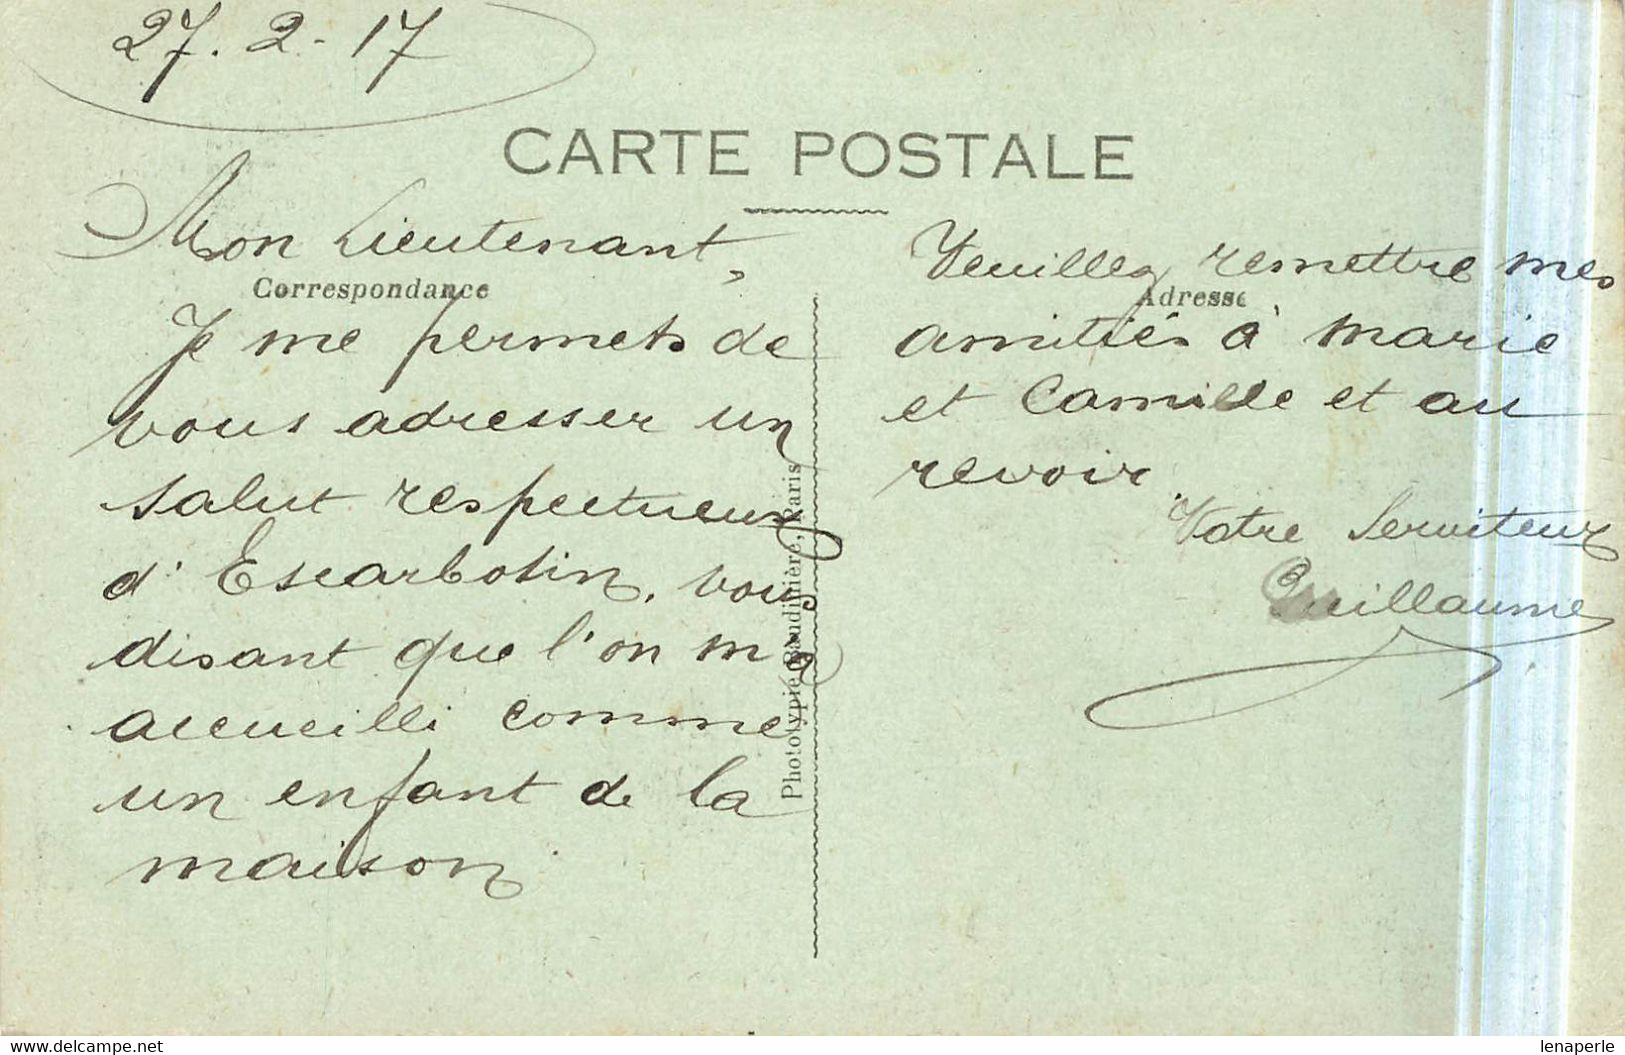 27.2-17
CARTE POSTALE
Mon Lieutenant,
Correspondance
Je me permets de
vous adresser un
salut respectueux
d'Escarbotin, vous
disant que l'on m'a
accueilli comme
un enfant de la
maison.
Photôtypie Baudinière, Paris
Veuillez remettre mes
Adresse
amitiés à Marie
et Camille et au
revoir.
Votre Serviteur
Guillaume
www.delcampe.net
lenaperle